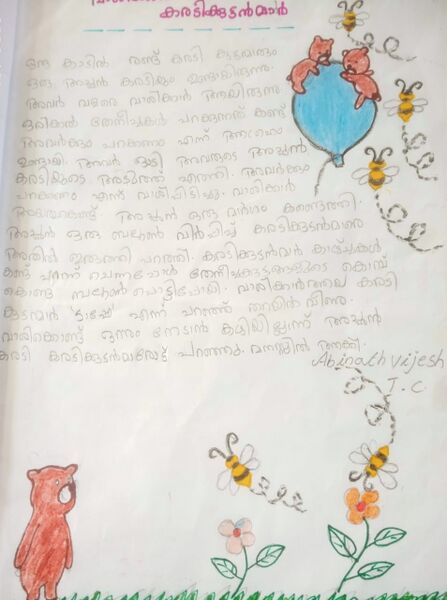 കരടിക്കുട്ടൻമാർ
ഒരു കാട്ടിൽ രണ്ട് കരടി കുട്ടന്മാരും
ഒരു അച്ഛൻ കരടിയും ഉണ്ടായിരുന്നു.
അവർ വളരെ വാശിക്കാർ ആയിരുന്നു
ഒരിക്കൽ തേനീച്ചകൾ പറക്കുന്നത് കണ്ട്
അവർക്കും പറക്കണം എന്ന് ആഗ്രഹം
ഉണ്ടായി. അവർ ഓടി അവരുടെ അച്ഛൻ
കരടിയുടെ അടുത്തേത്ത് എത്തി. അവർക്കും
പറക്കണം എന്ന് വാശിപിടിച്ചു. വാശികാർ
ആയതുകൊണ്ട് അച്ഛൻ ഒരു മാർഗം കണ്ടെത്തി.
അച്ഛൻ ഒരു ബലൂൺ വീർപ്പിച്ച് കരടിക്കുട്ടൻമാരെ
അതിൽ ഇരുത്തി പറത്തി. കരടിക്കുട്ടൻമാർ കാഴ്ചകൾ
കണ്ട് പറന്ന് ചെന്നപ്പോൾ തേനീച്ചക്കൂട്ടങ്ങളുടെ കൊമ്പ്
കൊണ്ടു ബലൂൺ പൊട്ടിപ്പോയി. വാശിക്കാരായ കരടി
കുട്ടന്മാർ എന്ന് പറഞ്ഞ് തറയിൽ വീണു.
വാശികൊണ്ട് ഒന്നും നേടാൻ കഴിയില്ലെന്ന് അച്ഛൻ
കരടി കരടിക്കുട്ടൻമാരോട് പറഞ്ഞു.
Abinath vijesh
I. C